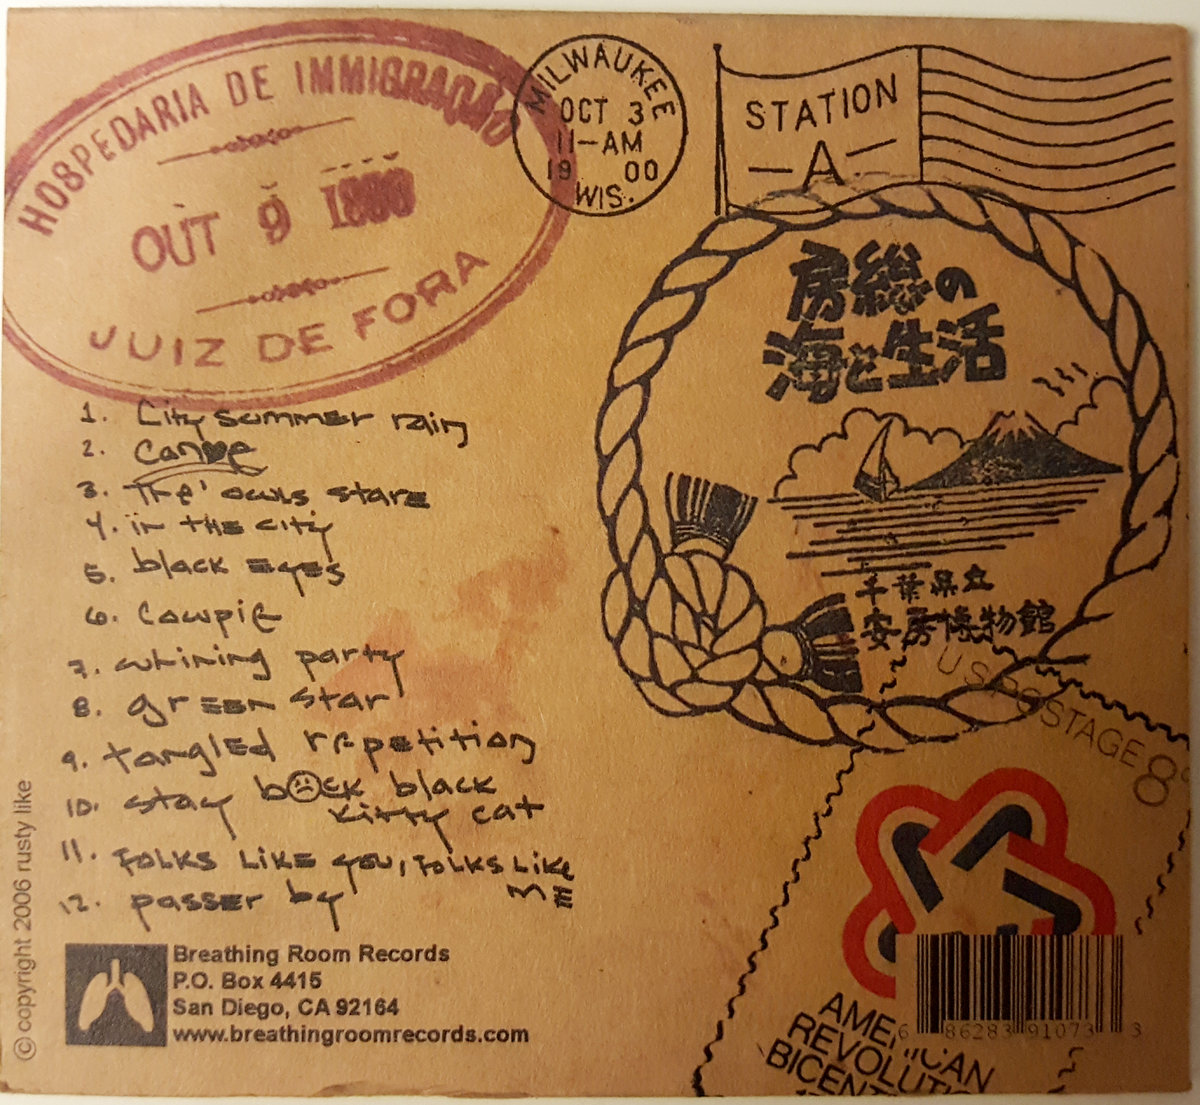 HOSPEDARIA DE IMMIGRAÇÃO
OUT 9 1890
JUIZ DE FORA
MILWAUKEE
OCT 3
11-AM
19 00
WIS.
STATION
A
房総の
海と生活
千葉県立
安房博物館
1. City summer rain
2. Canoe
3. The owls stare
4. in the city
5. black eyes
6. Cowpie
7. whining party
8. green star
9. tangled repetition
10. stay back black
kitty cat
11. FOLKS LIKE YOU, FOLKS LIKE
ME
12. passer by
U S POSTAGE 8c
AMERICAN
REVOLUTI
BICENT
6 86283 91073 3
Breathing Room Records
P.O. Box 4415
San Diego, CA 92164
www.breathingroomrecords.com
© copyright 2006 rusty like